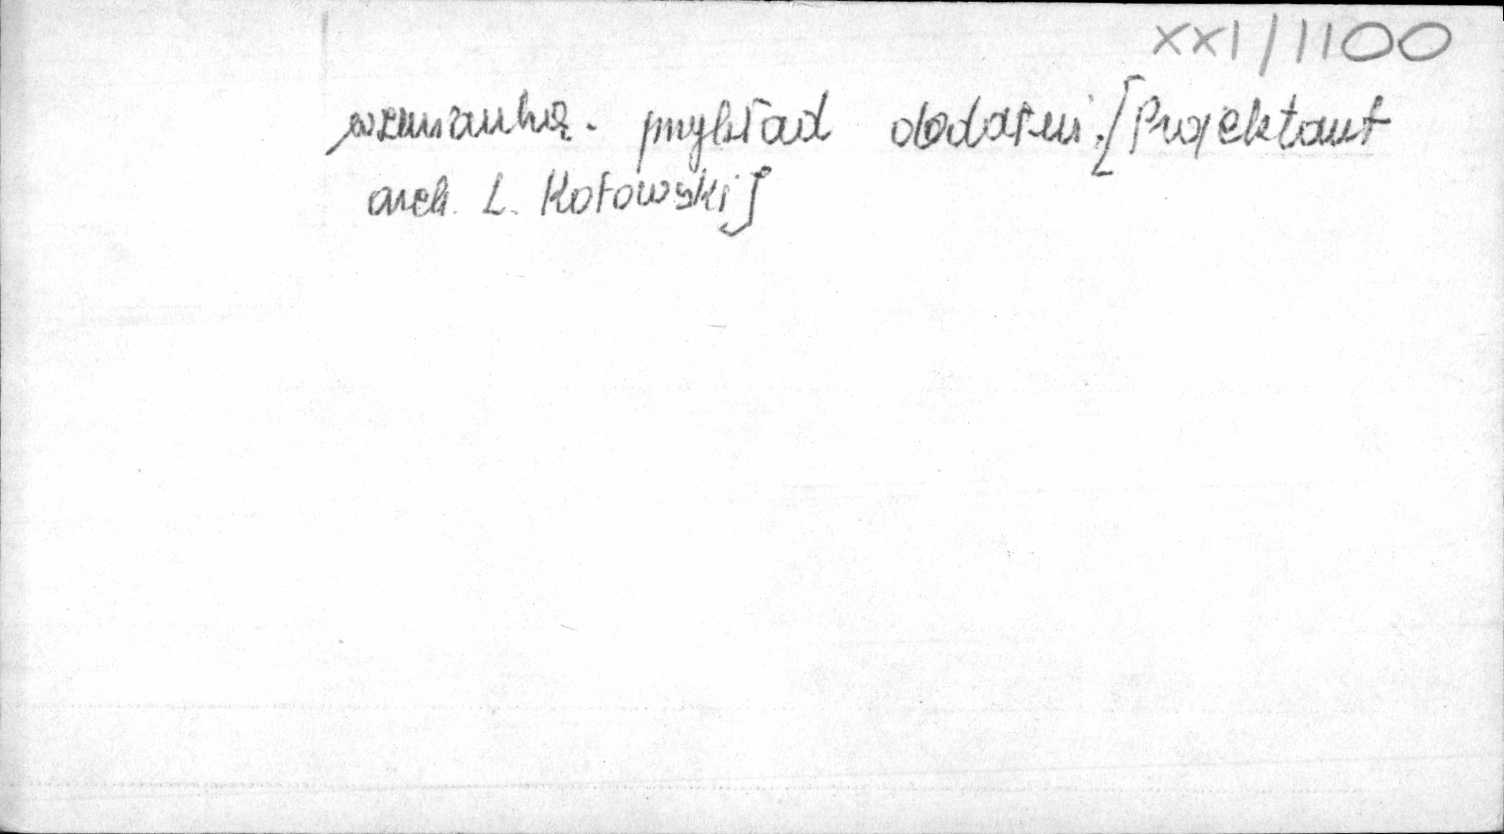 XXI/1100
wzmianka. przykład obdarm. [Projektant
arch. L. Kotowski]